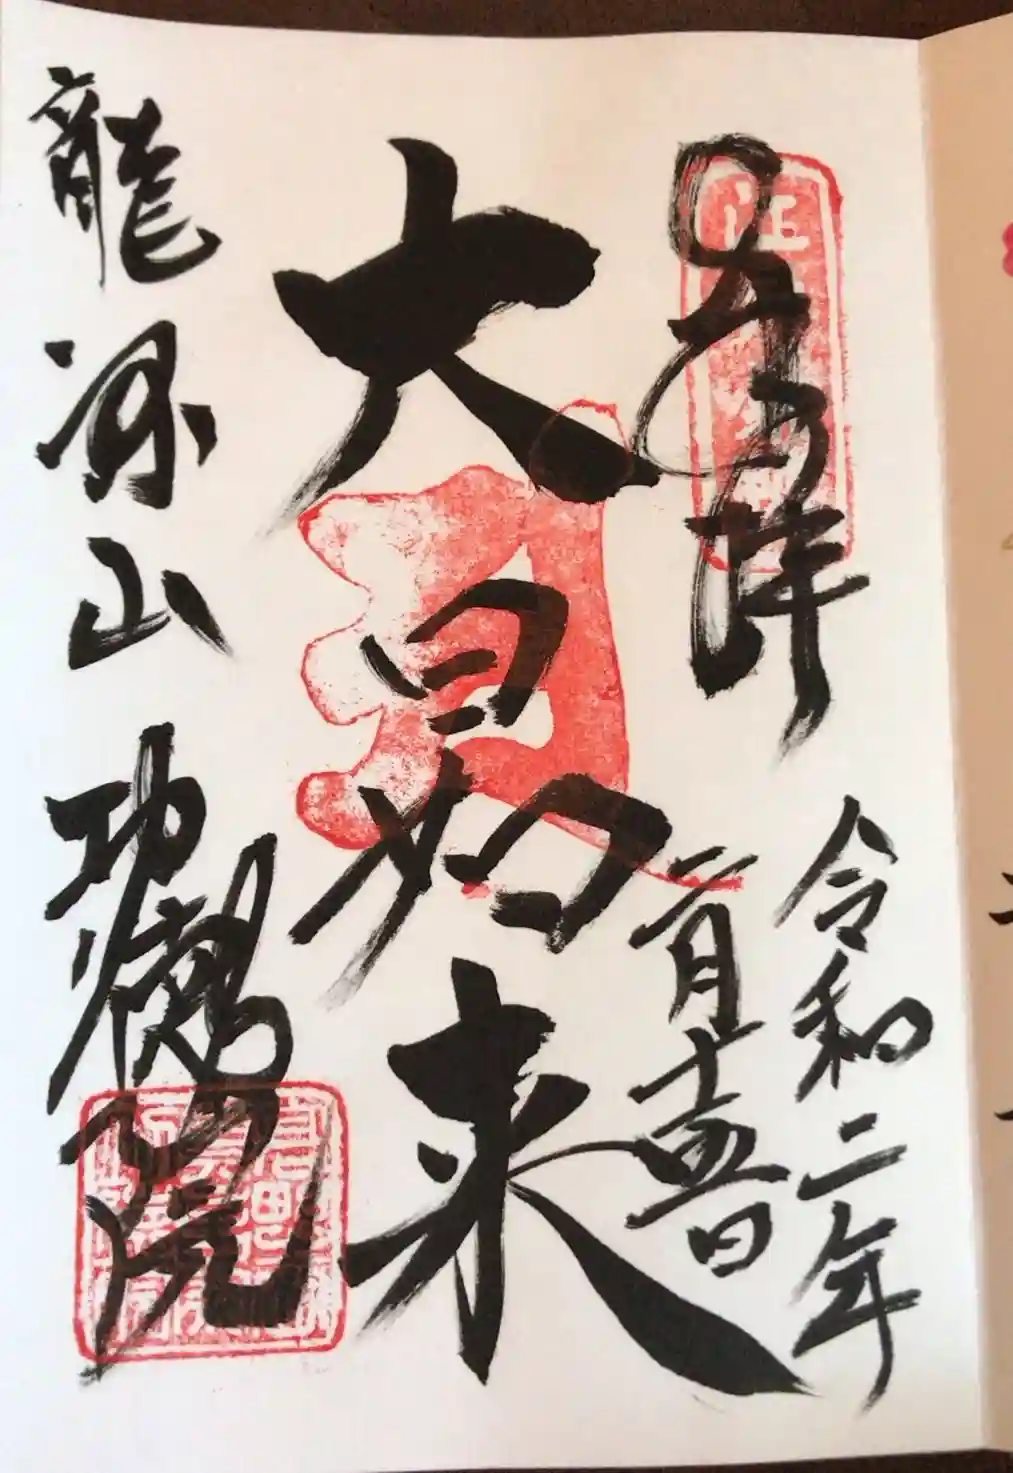 奉拝
令和二年
二月十五日
大日如来
龍源山
功徳院